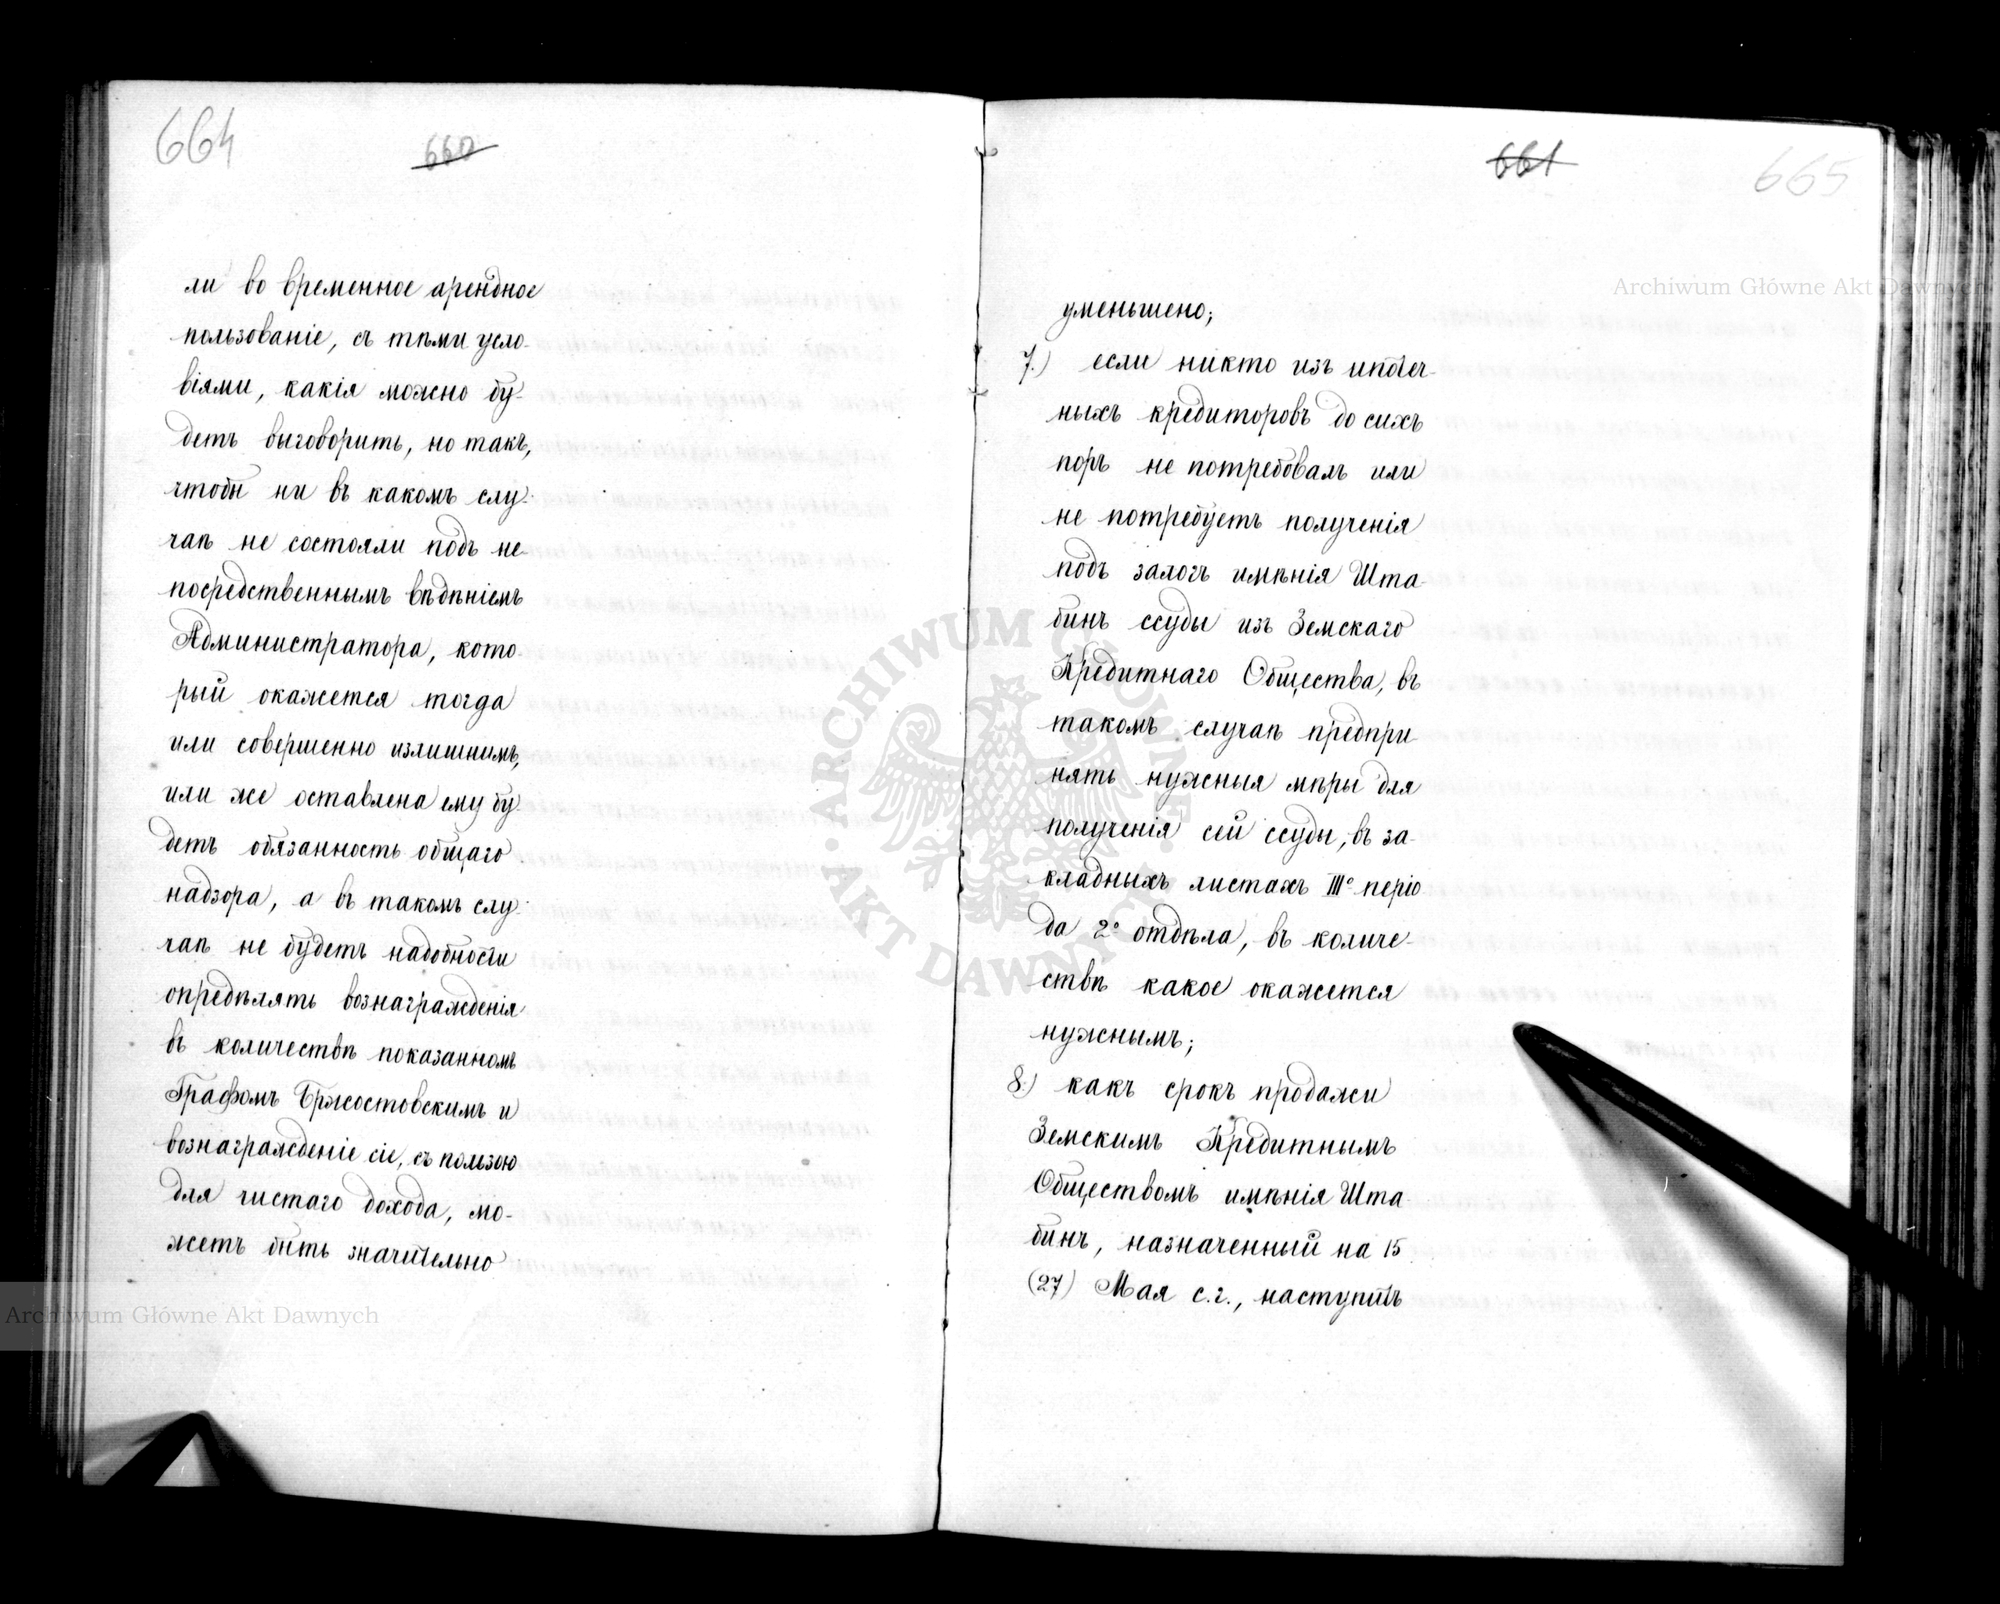 664
660
ли во временное арендное
пользованіе, съ тѣми усло-
віями, какія можно бу-
детъ выговорить, но такъ,
чтобы ни въ какомъ слу-
чаѣ не состояли подъ не-
посредственнымъ вѣдѣніемъ
Администратора, кото-
рый окажется тогда
или совершенно излишнимъ,
или же оставлена ему бу-
детъ обязанность общаго
надзора, а въ такомъ слу-
чаѣ не будетъ надобности
опредѣлять вознагражденія
въ количествѣ показанномъ
Графомъ Бржостовскимъ и
вознагражденіе сіе, съ пользою
для чистаго дохода, мо-
жетъ быть значительно
661
665
уменьшено;
7.) если никто изъ ипотеч-
ныхъ кредиторовъ до сихъ
поръ не потребовалъ или
не потребуетъ полученія
подъ залогъ имѣнія Шта-
бинъ ссуды изъ Земскаго
Кредитнаго Общества, въ
такомъ случаѣ предпри-
нять нужныя мѣры для
полученія сей ссуды, въ за-
кладныхъ листахъ IIIº періо
да 2º отдѣла, въ количе-
ствѣ какое окажется
нужнымъ;
8.) какъ срокъ продажи
Земскимъ Кредитнымъ
Обществомъ имѣнія Шта-
бинъ, назначенный на 15
(27) Мая с. г., наступитъ
Archiwum Główne Akt Dawnych
Archiwum Główne Akt Dawnych
ARCHIWUM GŁÓWNE AKT DAWNYCH